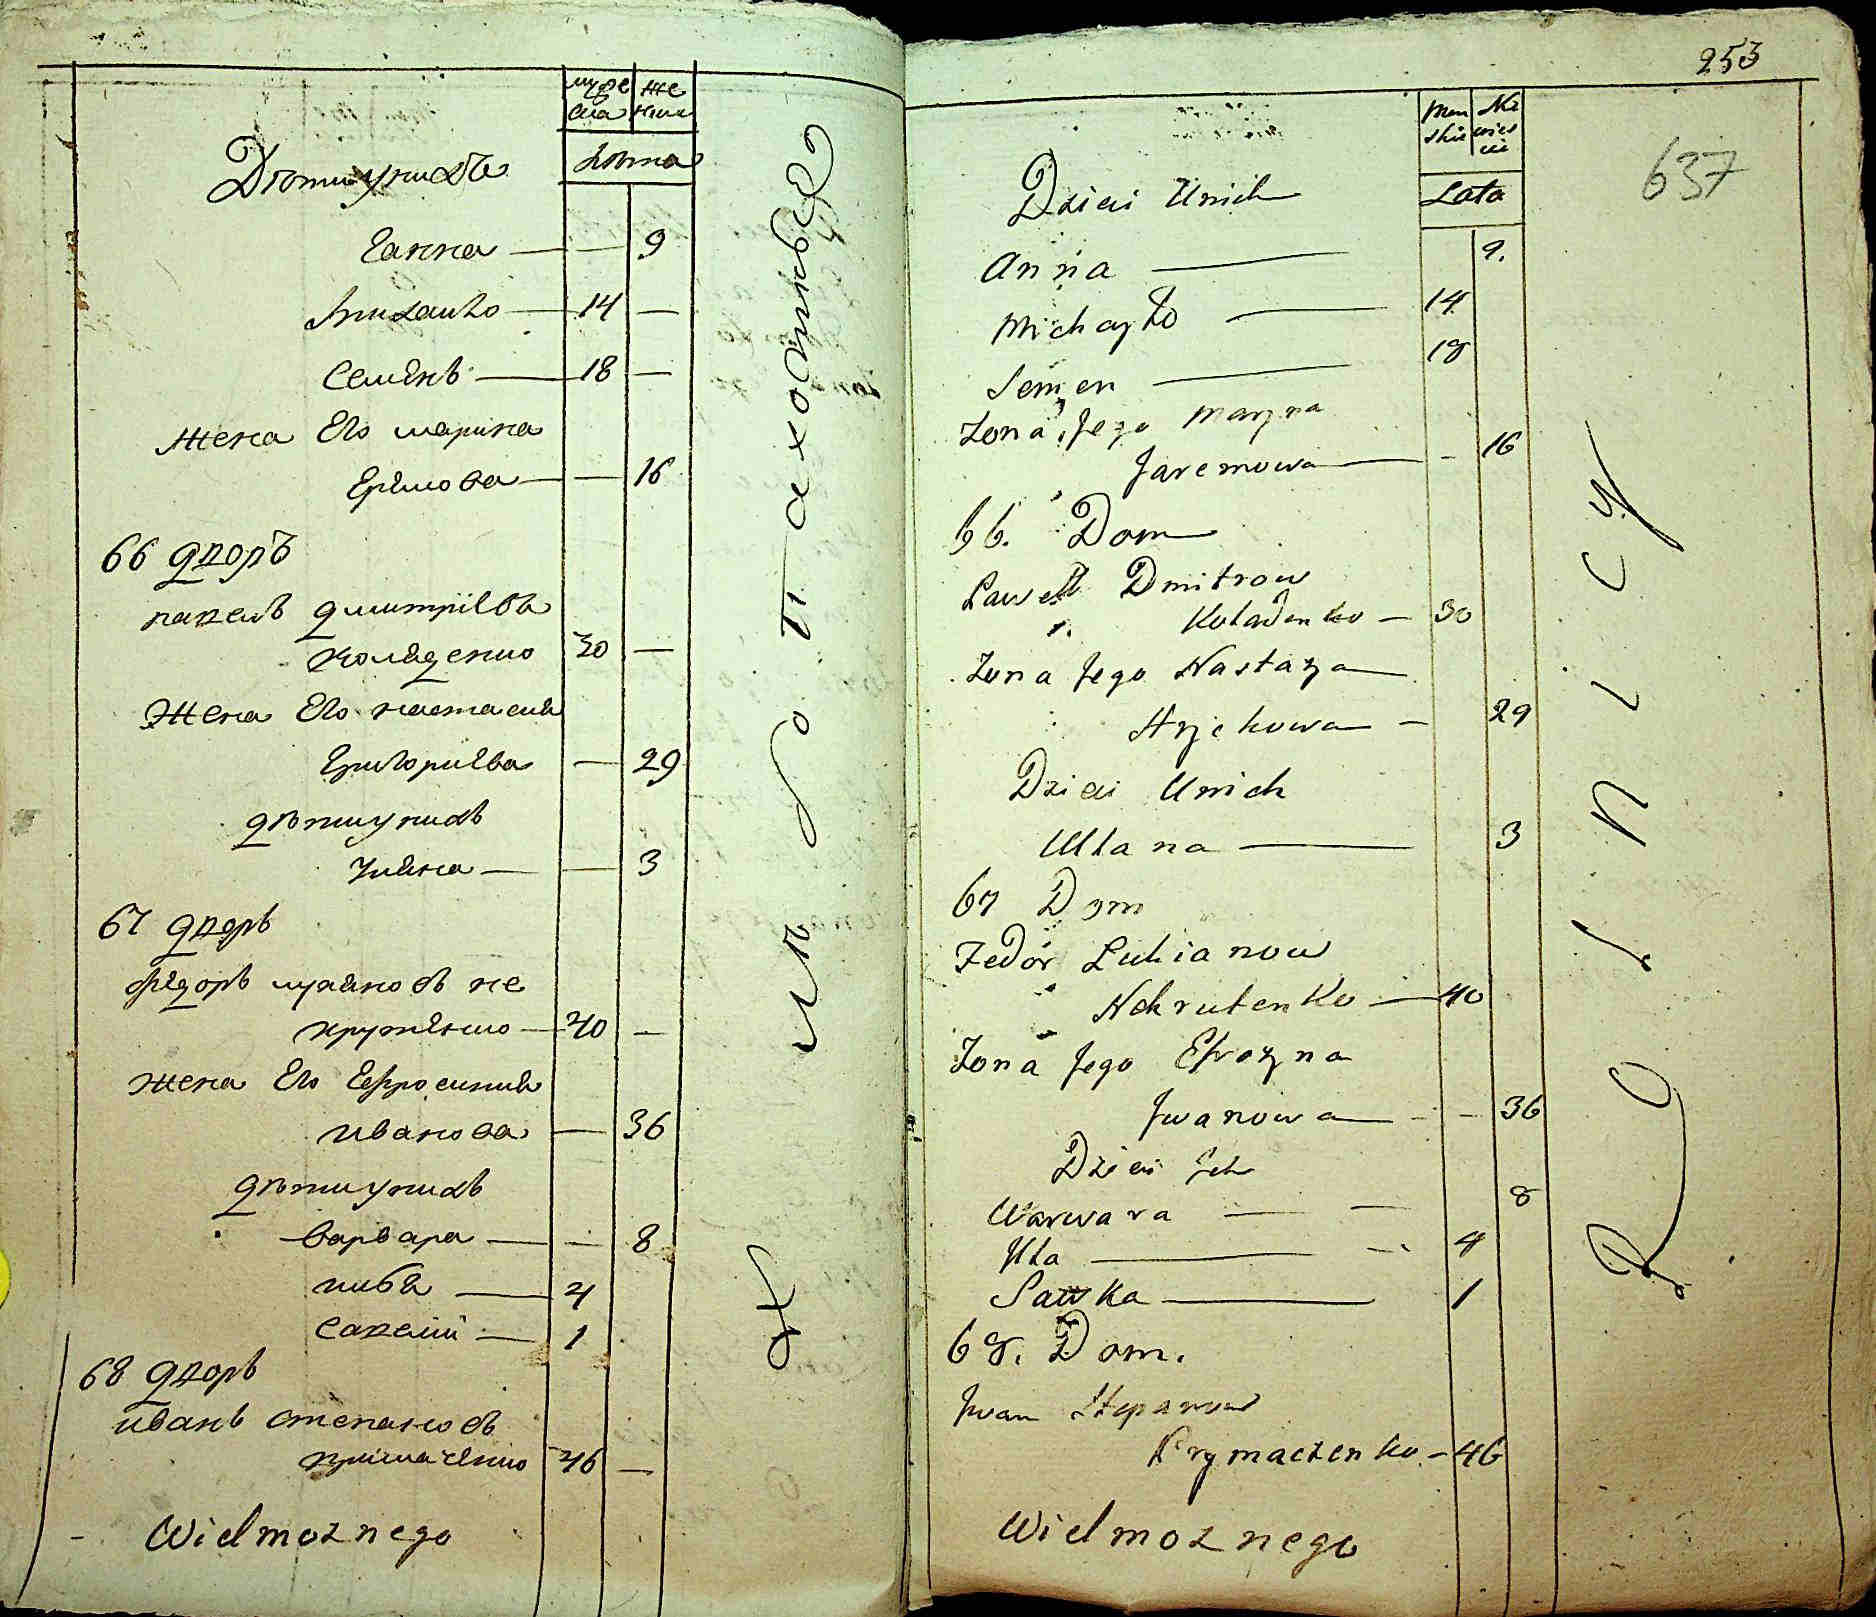 муже
ска
же
нска
лѣта
Дѣти у нихъ
Ганна — — 9
Михайло — 14 —
Семенъ — 18 —
Жена Его марина
Ерємова — — 16
66 дворъ
павелъ дмитріевъ
коляденко 30 —
Жена Его настасия
Григориева — 29
дѣти у нихъ
уляна — — 3
67 дворъ
федоръ лукяновъ не
крутенко — 40 —
жена Его Ефросиния
иванова — 36
дѣти у нихъ
варвара — — 8
илія — 4
савелий — 1
68 дворъ
иванъ степановъ
примаченко 46 —
Wielmoznego
253
637
Men
skie
Nie
wies
cie
Lata
Dzieci Unich
Anna — 9.
Michayło — 14
Semen — 18
Zona Jego Maryna
Jaremowa — - 16
66. Dom
Paweł Dmitrow
Koladenko — 30
Zona Jego Nastazya
Hrychowa — 29
Dzieci Unich
Ulana — 3
67 Dom
Fedor Lukianow
Nekrutenko — 40
Zona Jego Efrozyna
Iwanowa — - 36
Dzieci Ich
Warwara — — 8
Ila — 4
Sawka — 1
68. Dom.
Iwan Stepanow
Prymaczenko - 46
Wielmoznego
Rolnicy